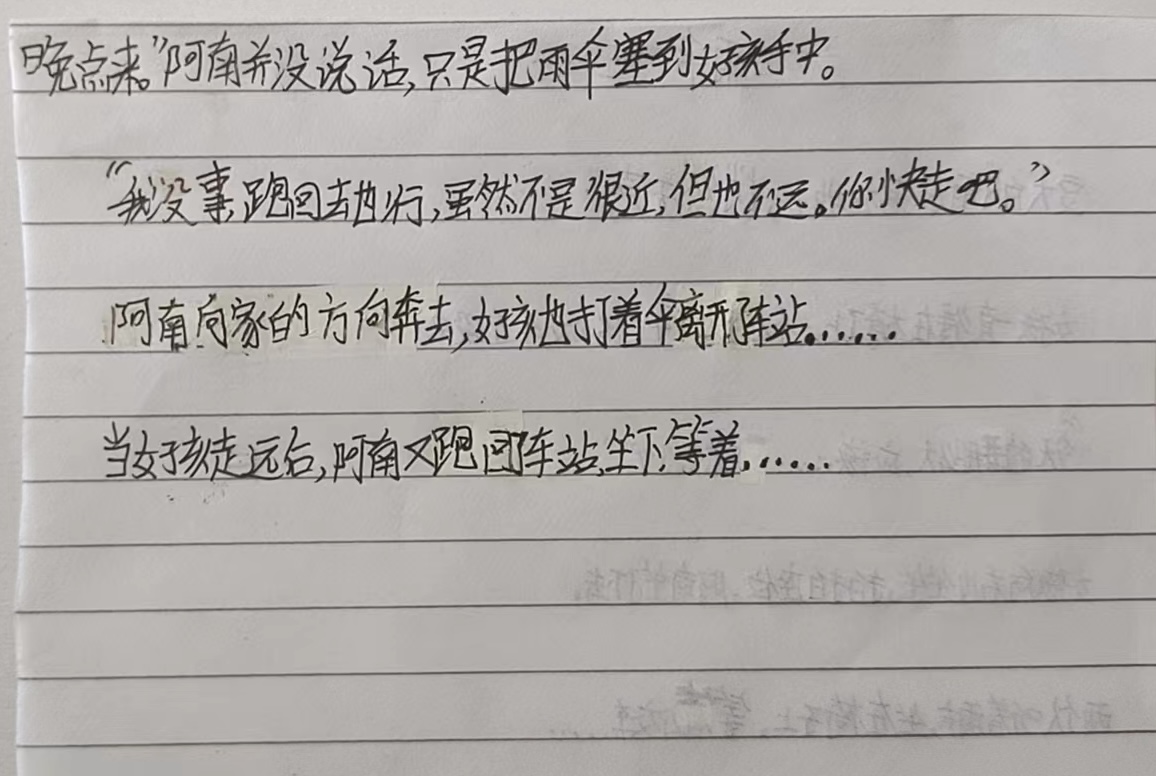 晚点来。”阿南并没说话,只是把雨伞塞到女孩手中。
“我没事,跑回去也行,虽然不是很近,但也不远。你快走吧。”
阿南向家的方向奔去,女孩也打着伞离开车站......
当女孩走远后,阿南又跑回车站,坐下,等着,......